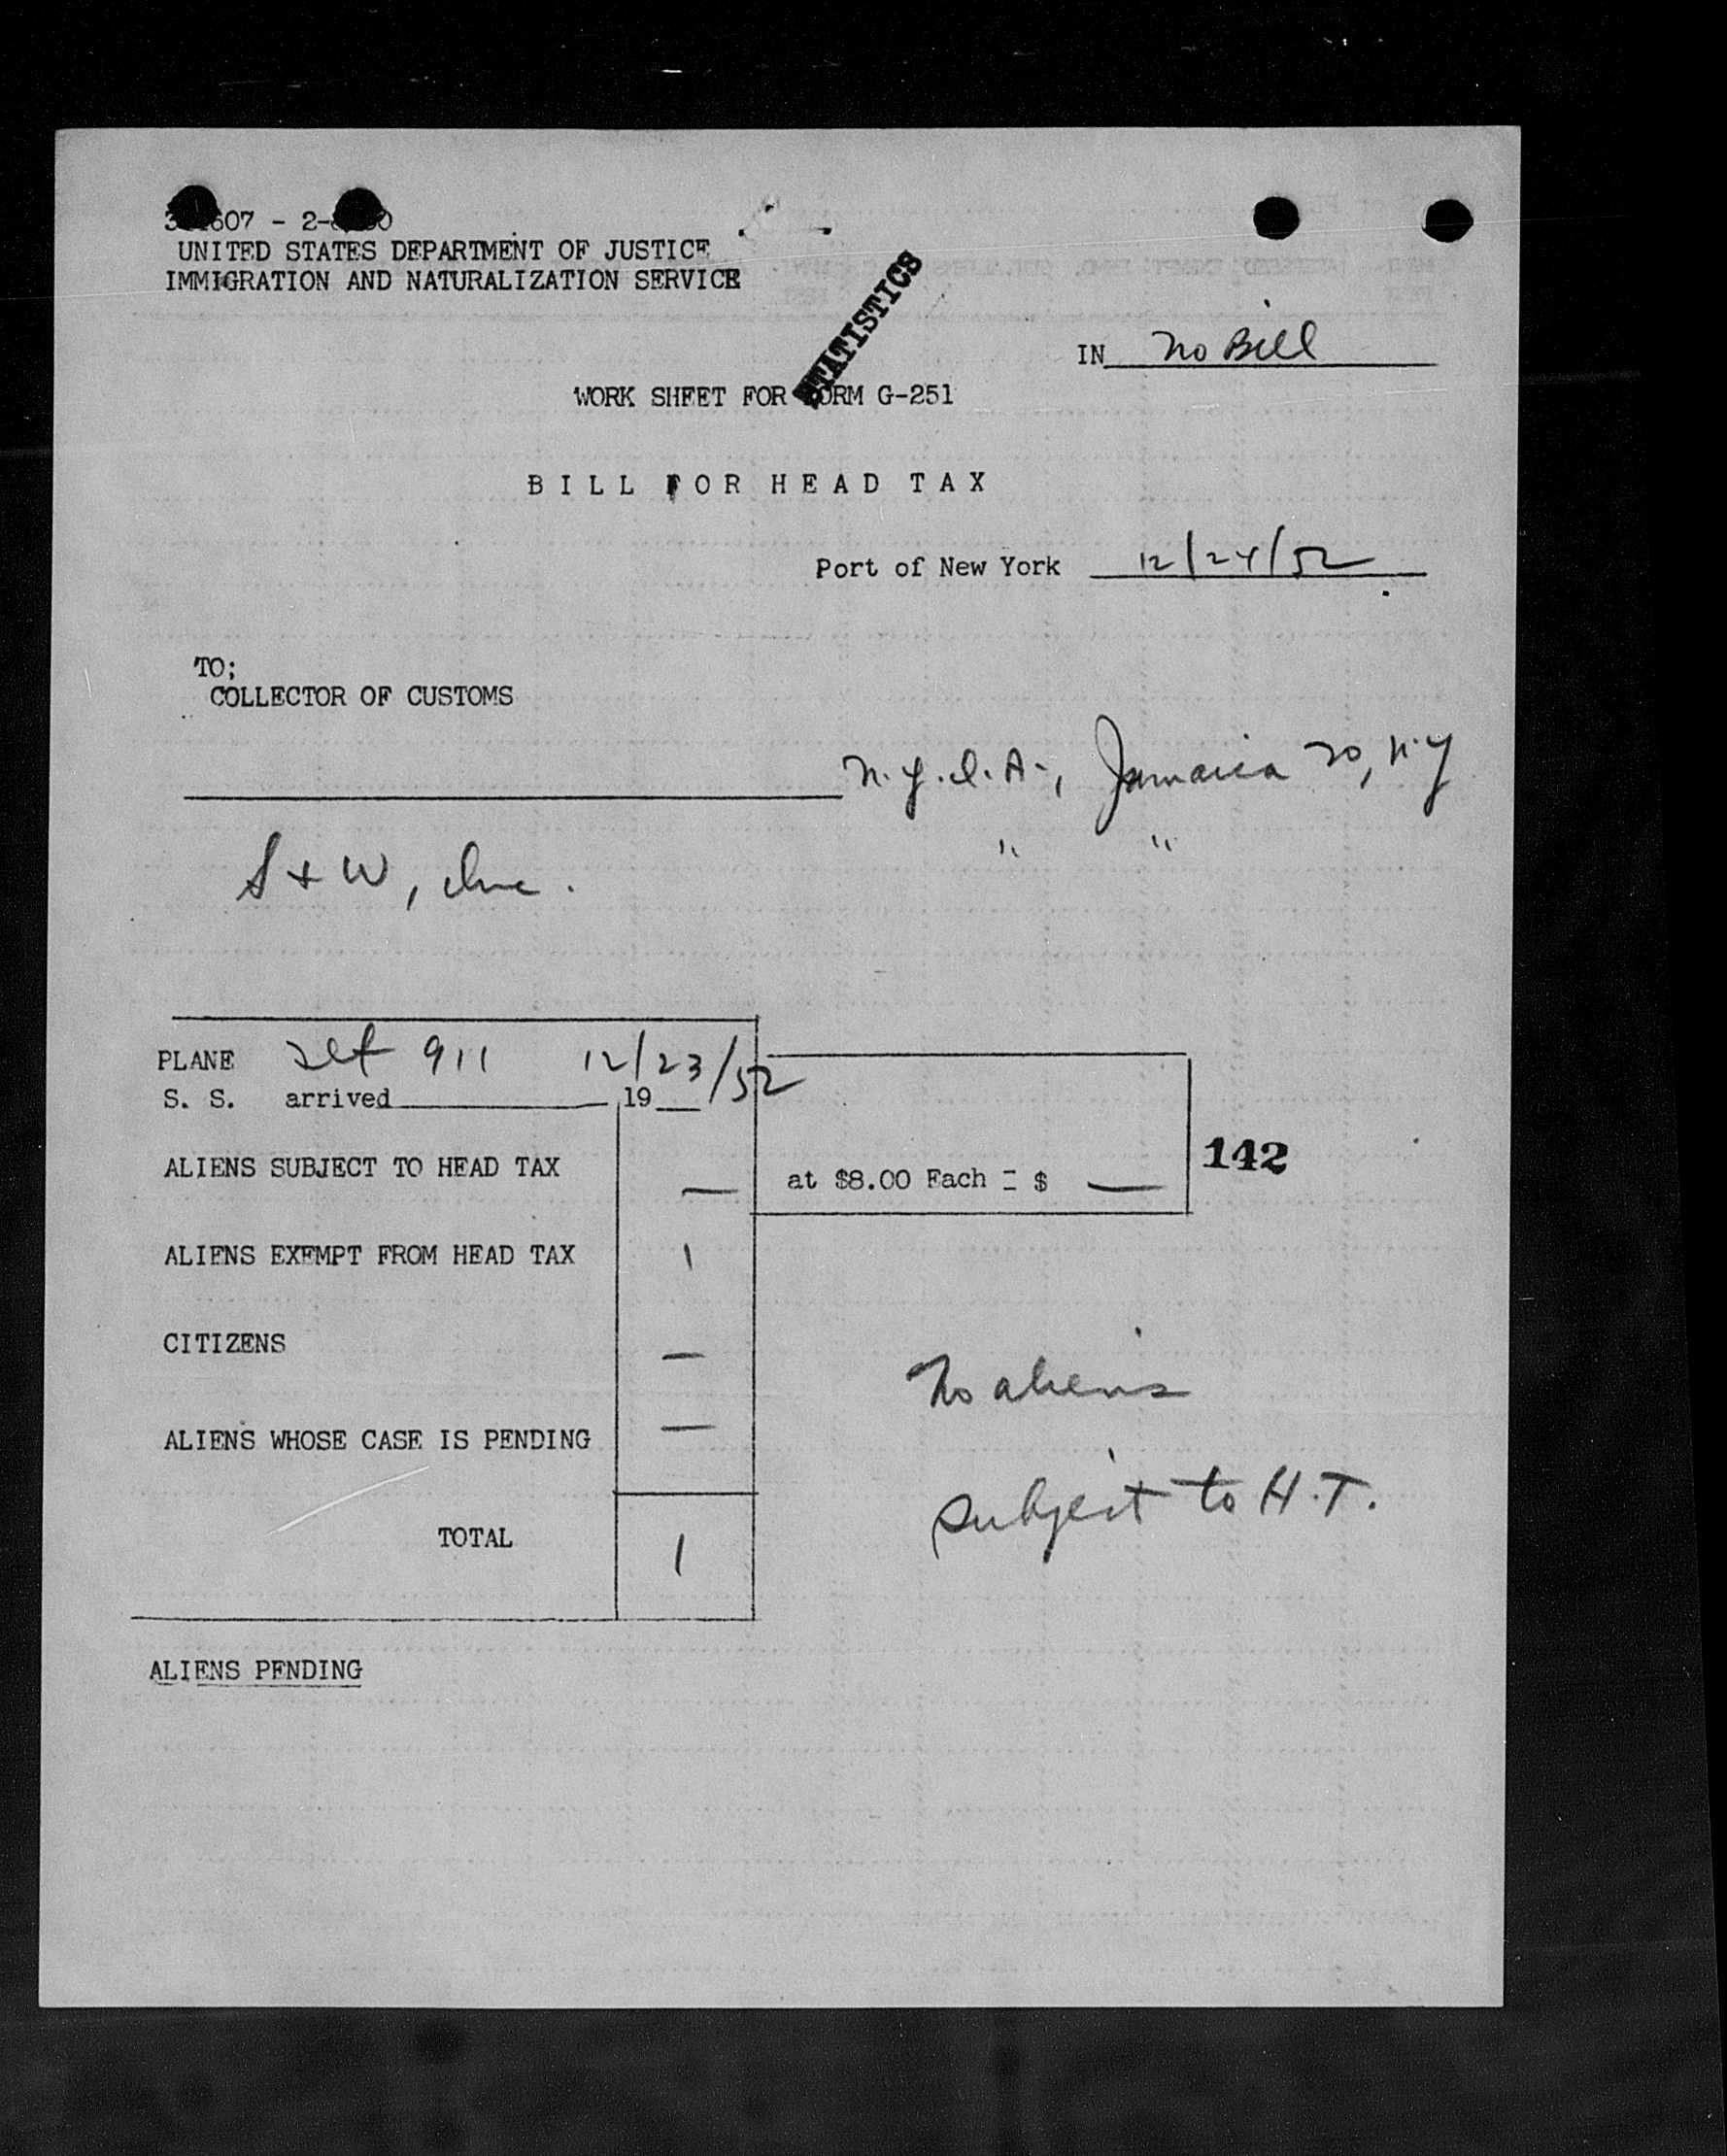 607 - 2-
UNITED STATES DEPARTMENT OF JUSTICE
IMMIGRATION AND NATURALIZATION SERVICE
STATISTICS
IN No Bill
WORK SHEET FOR FORM G-251
BILL FOR HEAD TAX
Port of New York 12/24/52
TO;
COLLECTOR OF CUSTOMS
N.Y.I.A., Jamaica 30, N.Y
" "
S + W, Inc.
PLANE 911 12/23/52
S. S. arrived 19
ALIENS SUBJECT TO HEAD TAX — at $8.00 Each = $ — 142
ALIENS EXEMPT FROM HEAD TAX 1
CITIZENS —
No aliens
ALIENS WHOSE CASE IS PENDING —
subject to H.T.
TOTAL 1
ALIENS PENDING